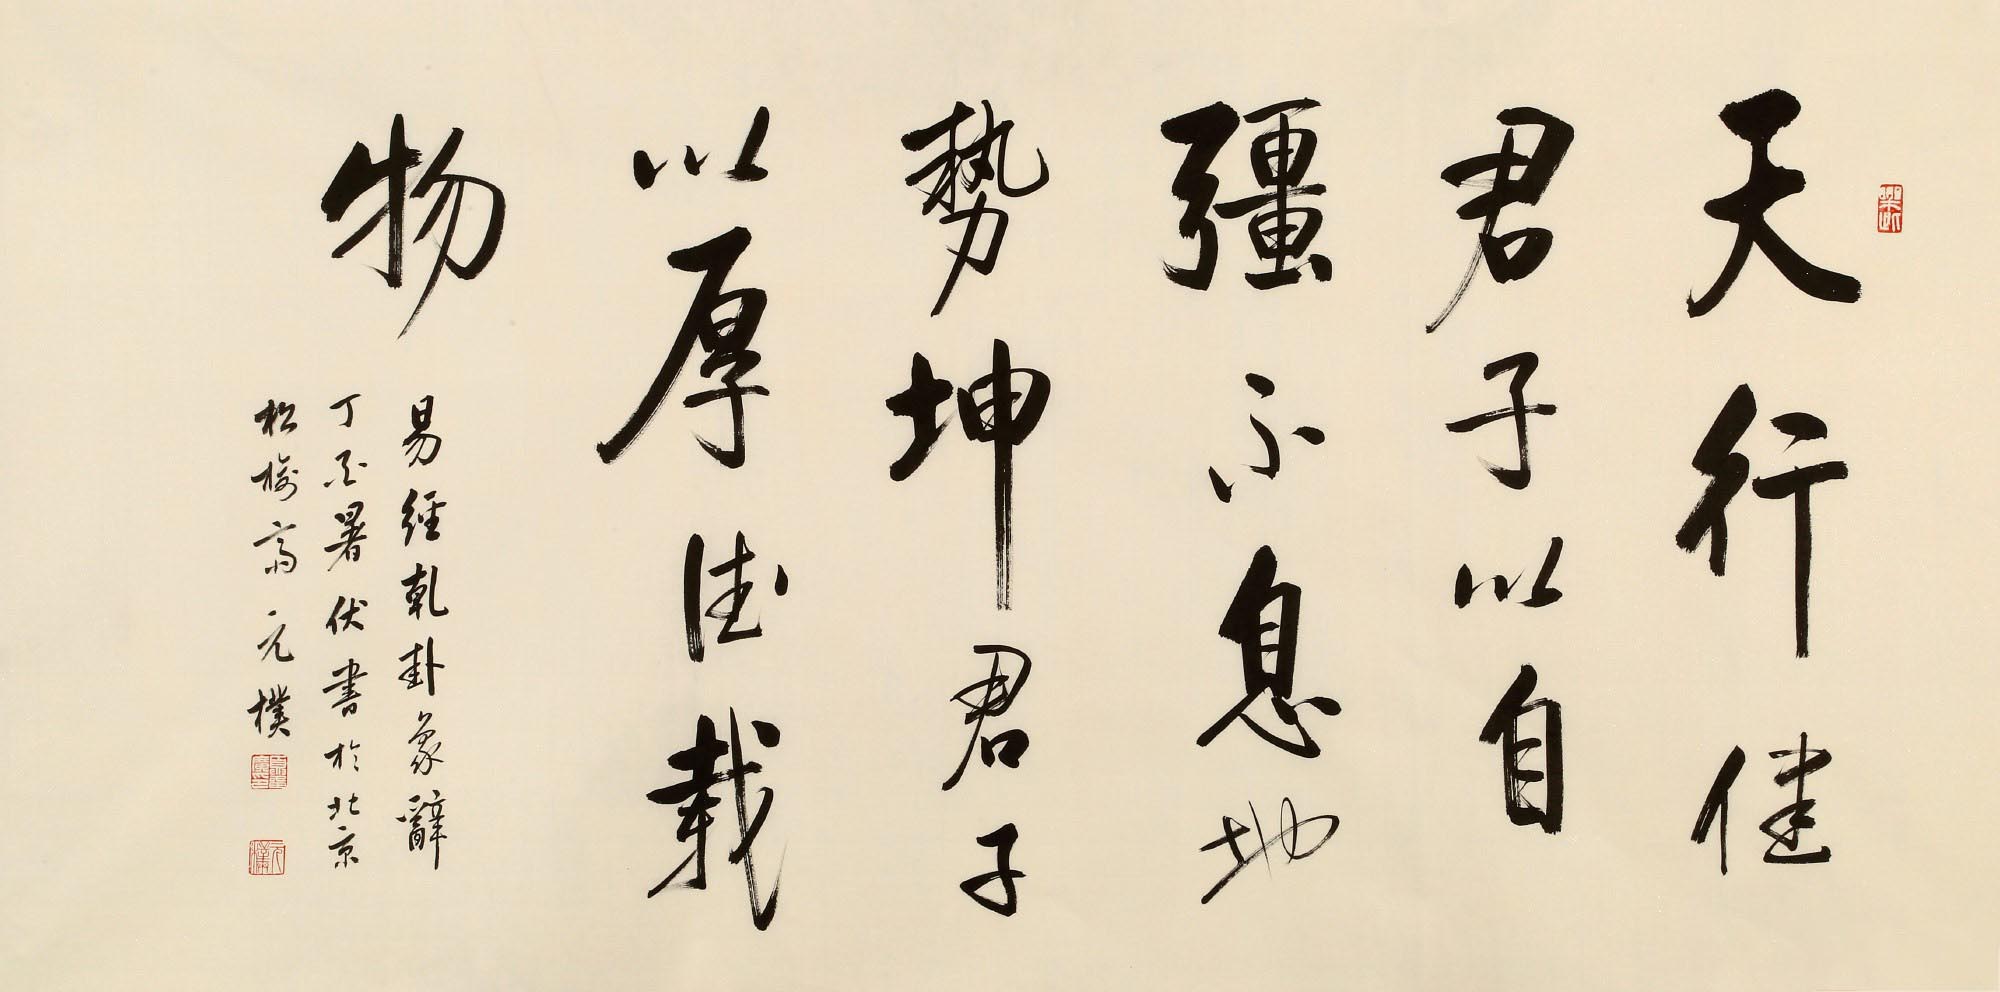 天行健
君子以自
彊不息地
勢坤君子
以厚德載
物
易經乾卦象辭
丁酉暑伏書於北京
松榆齋元樸